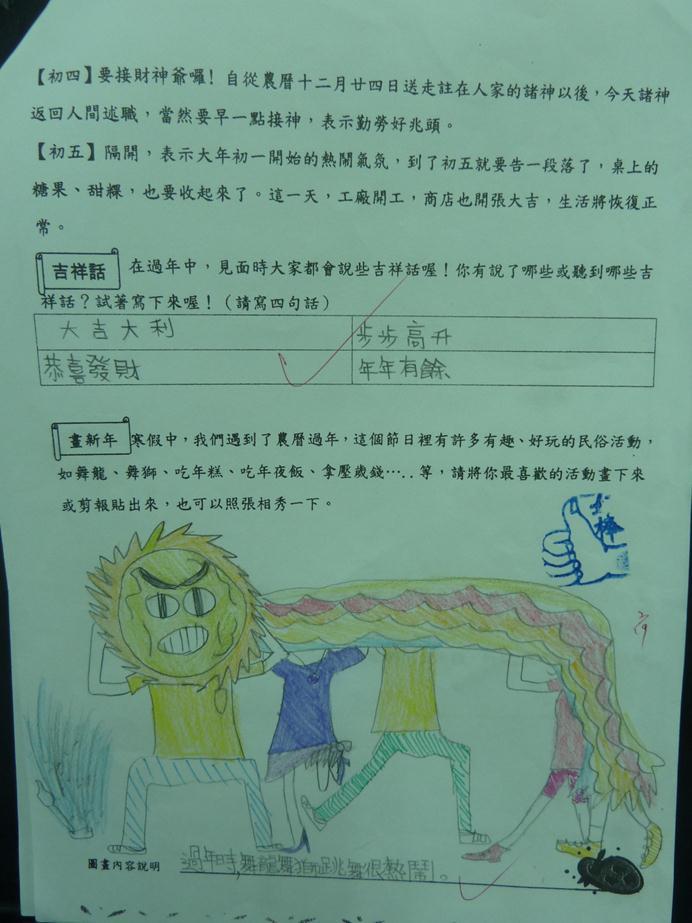 【初四】要接財神爺囉！自從農曆十二月廿四日送走註在人家的諸神以後，今天諸神
返回人間述職，當然要早一點接神，表示勤勞好兆頭。
【初五】隔開，表示大年初一開始的熱鬧氣氛，到了初五就要告一段落了，桌上的
糖果、甜粿，也要收起來了。這一天，工廠開工，商店也開張大吉，生活將恢復正
常。
吉祥話 在過年中，見面時大家都會說些吉祥話喔！你有說了哪些或聽到哪些吉
祥話？試著寫下來喔！（請寫四句話）
大吉大利 步步高升
恭喜發財 年年有餘
畫新年 寒假中，我們遇到了農曆過年，這個節日裡有許多有趣、好玩的民俗活動，
如舞龍、舞獅、吃年糕、吃年夜飯、拿壓歲錢…..等，請將你最喜歡的活動畫下來
或剪報貼出來，也可以照張相秀一下。
棒
圖畫內容說明 過年時,舞龍舞獅跳舞很熱鬧。